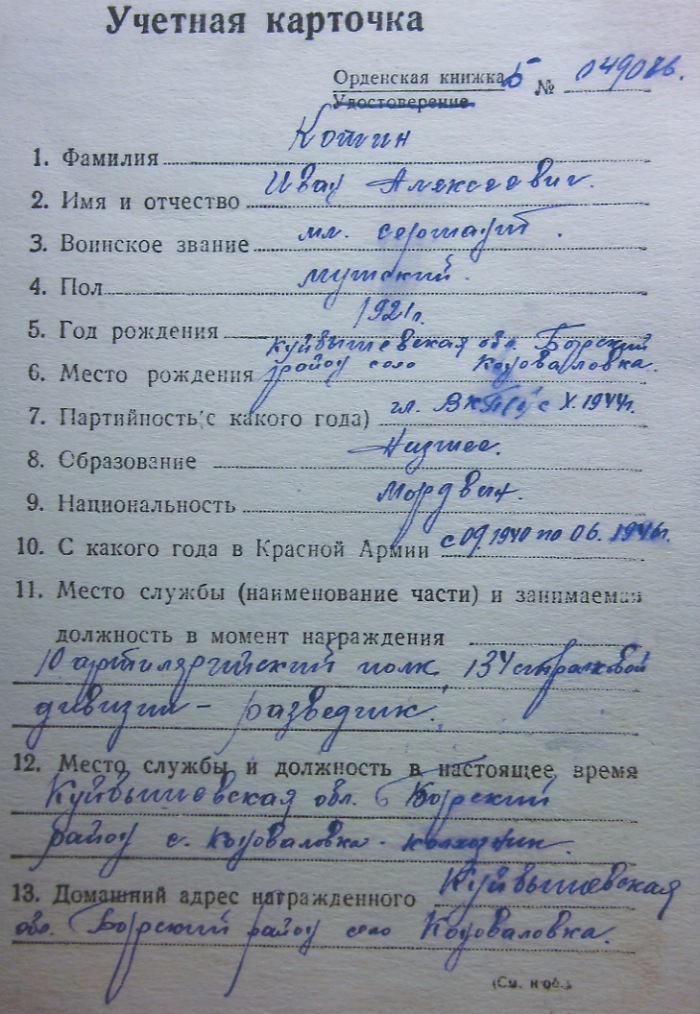 Учетная карточка
Орденская книжка Б № 049086.
Удостоверение
1. Фамилия Котин
2. Имя и отчество Иван Алексеевич.
3. Воинское звание мл. сержант.
4. Пол мужской.
5. Год рождения 1921г.
Куйбышевская обл. Борский
6. Место рождения район село Коноваловка.
7. Партийность (с какого года) чл. ВКП(б) с X.1944г.
8. Образование Низшее.
9. Национальность Мордвин.
10. С какого года в Красной Армии с 09.1940 по 06.1946г.
11. Место службы (наименование части) и занимаемая
должность в момент награждения
10 артилярийский полк, 134 стрелковой
дивизии - разведчик.
12. Место службы и должность в настоящее время
Куйбышевская обл. Борский
район с. Коноваловка - колхозник.
13. Домашний адрес награжденного Куйбышевская
обл. Борский район село Коноваловка.
(См. н об.)